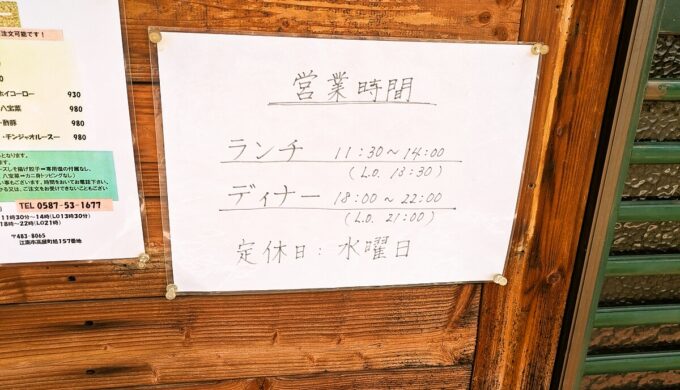 注文可能です！
ホイコーロー 930
八宝菜 980
酢豚 980
・チンジャオルースー 980
となります。
ます。
TEL 0587-53-1677
11時30分～14時(LO13時30分)
18時～22時(LO21時)
〒483-8065
営業時間
ランチ 11:30～14:00
(L.O. 13:30)
ディナー 18:00～22:00
(L.O. 21:00)
定休日: 水曜日